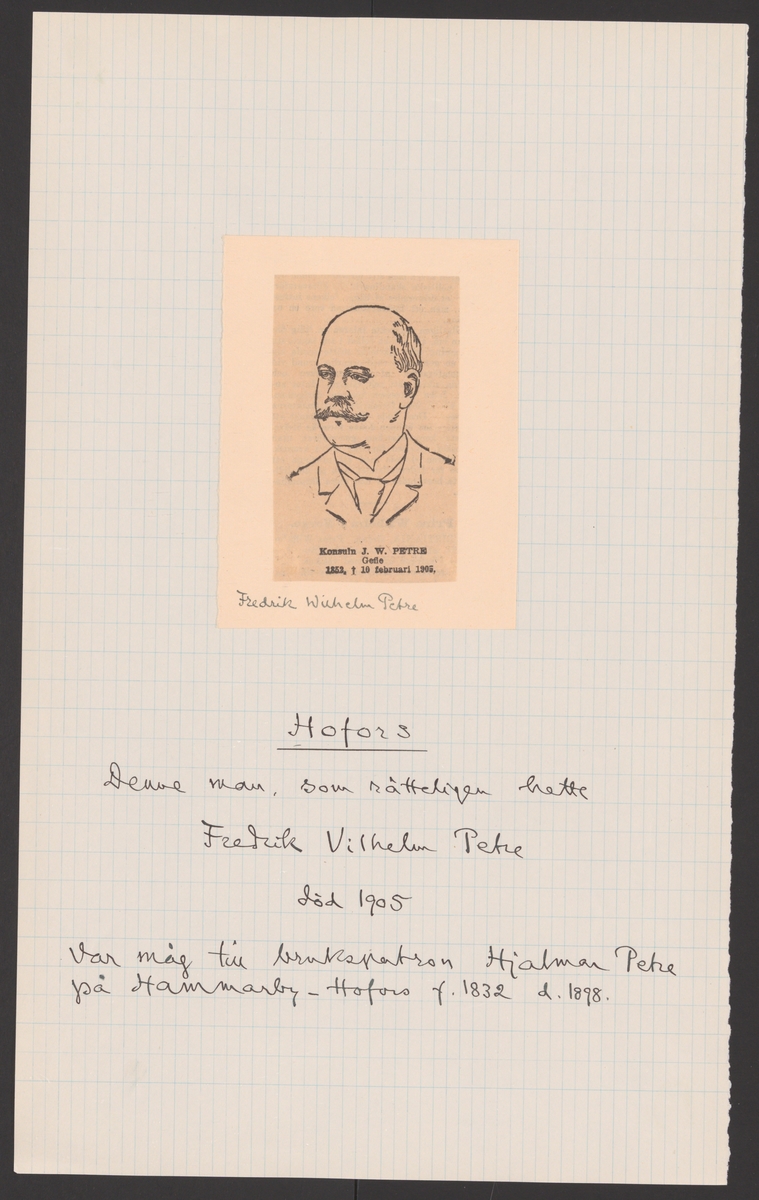 Konsuln J. W. PETRE
Gefle
1853, † 19 februari 1905.
Fredrik Wilhelm Petre
Hofors
Denne man, som rätteligen hette
Fredrik Vilhelm Petre
död 1905
Var måg till brukspatron Hjalmar Petre
på Hammarby - Hofors f. 1832 d. 1898.